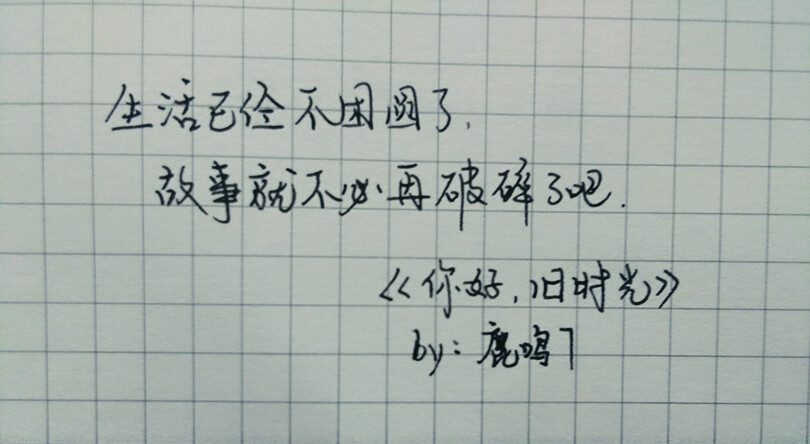 生活已经不困圆了,
故事就不必再破碎了吧.
《你好,旧时光》
by:鹿鸣7